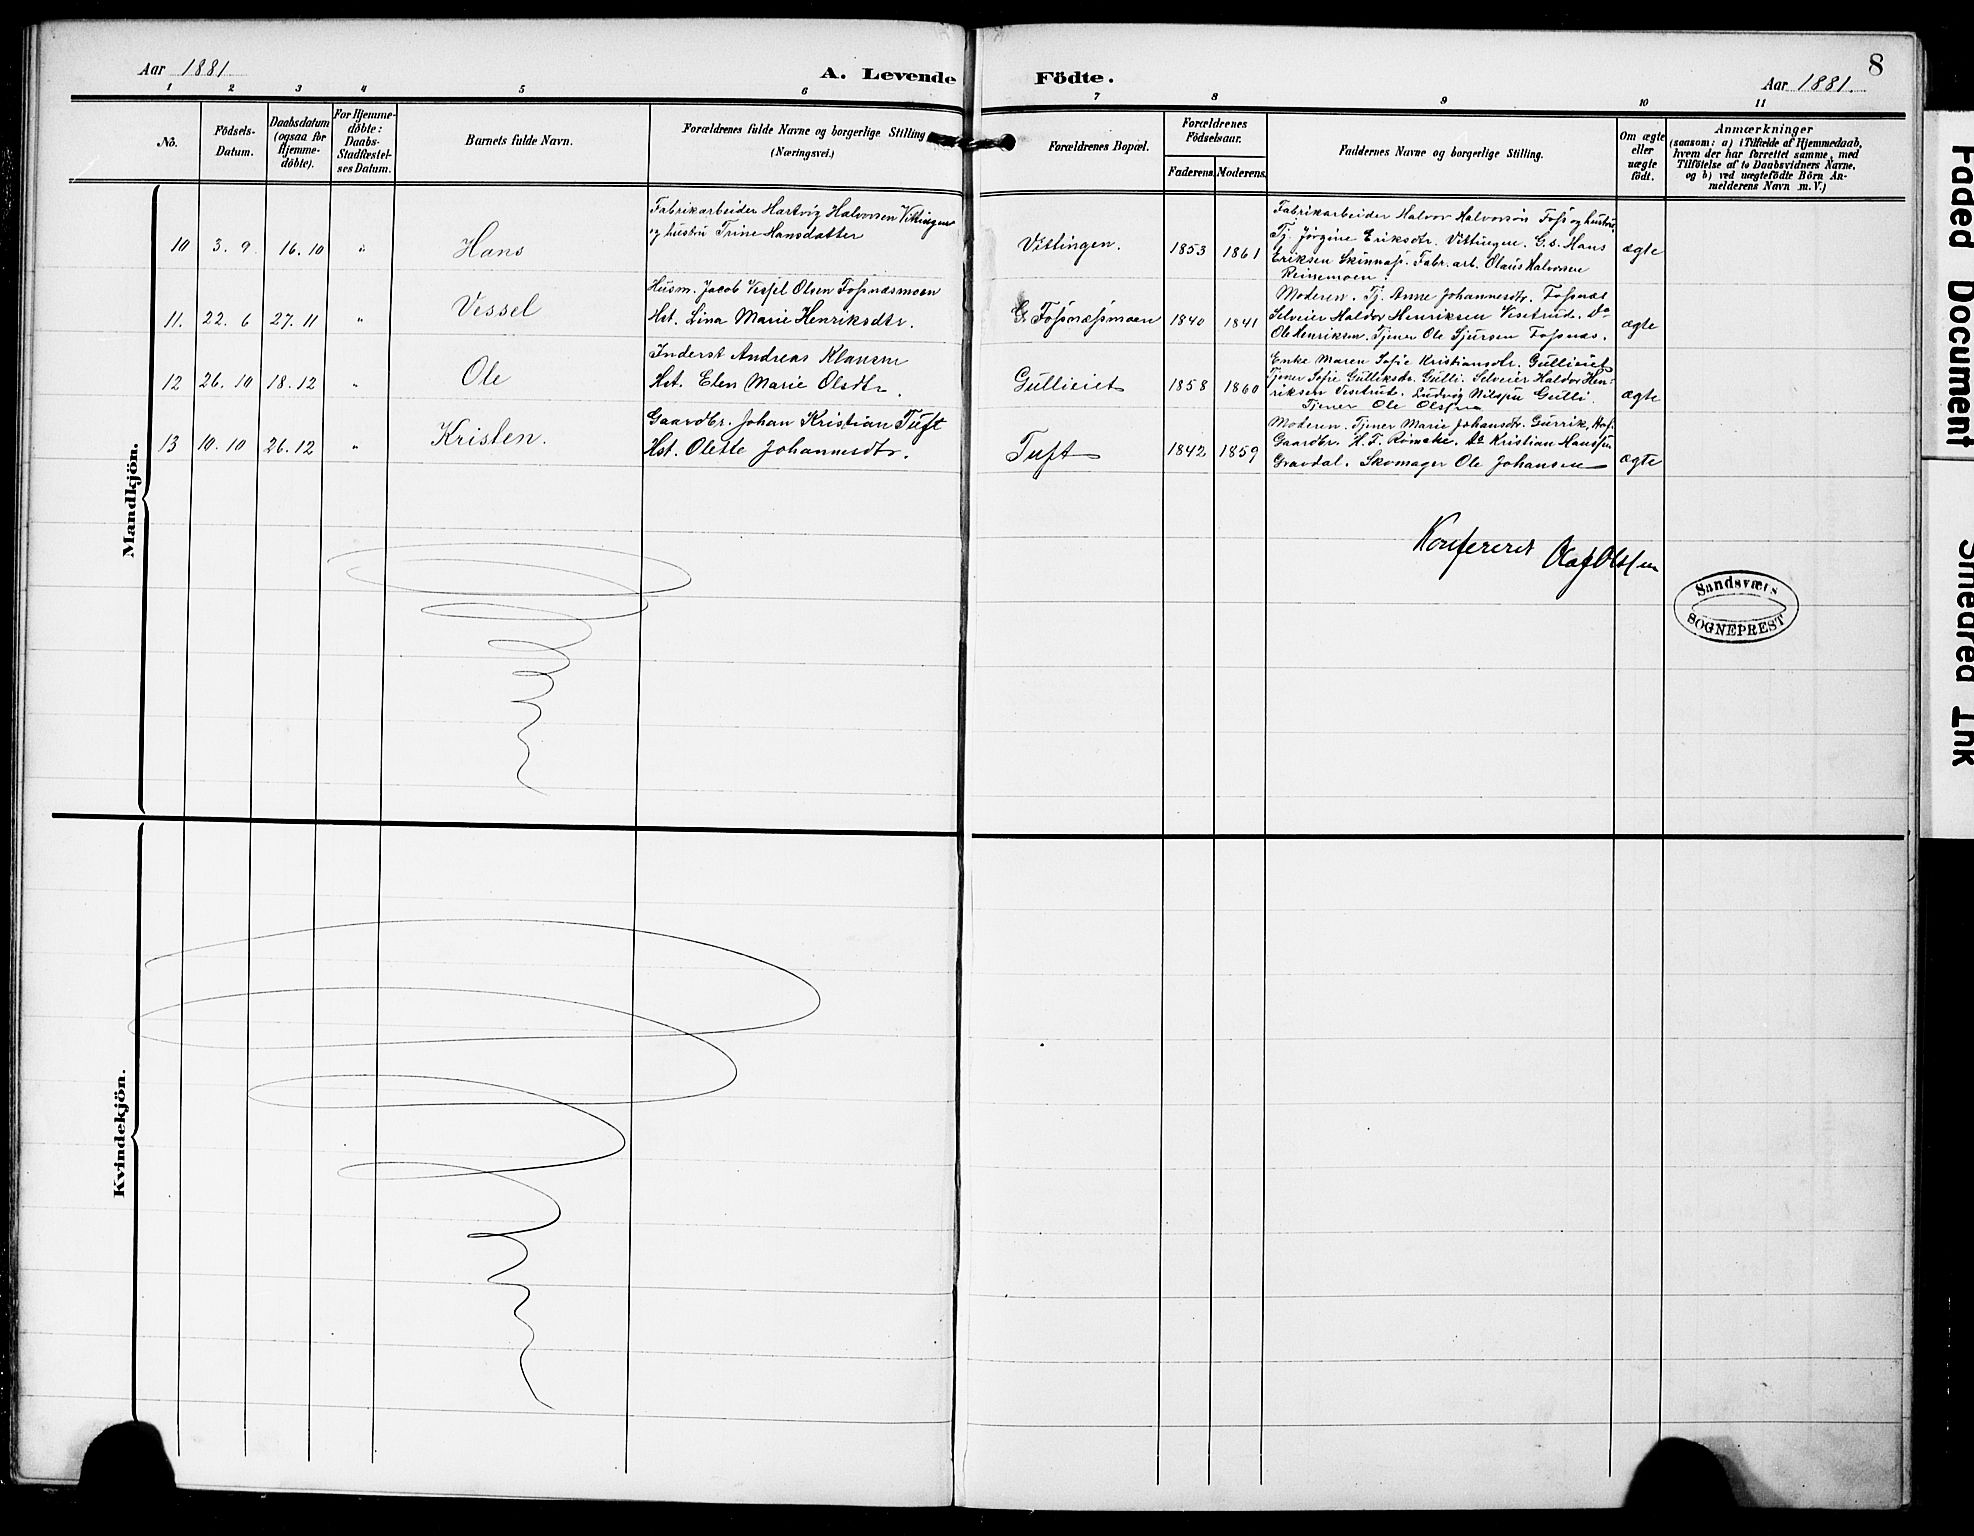 Aar 1881.
A. Levende Födte.
8
Aar 1881.
1 2 3 4 5 6 7 8 9 10 11
No.
Födsels-
Datum.
Daabsdatum
(ogsaa for
Hjemme-
döbte).
For Hjemme-
döbte:
Daabs-
Stadfæstel-
ses Datum.
Barnets fulde Navn.
Forældrenes fulde Navne og borgerlige Stilling
(Næringsvei.)
Forældrenes Bopæl.
Forældrenes
Födselsaar.
Faderens. Moderens.
Faddernes Navne og borgerlige Stilling.
Om ægte
eller
uægte
födt.
Anmærkninger
(saasom: a) i Tilfælde af Hjemmedaab,
hvem der har forrettet samme, med
Tilföielse af to Daabsvidners Navne,
og b) ved uægtefödte Börn An-
melderens Navn m. V.)
Mandkjön.
10 3. 9. 16. 10 " Hans
Fabrikarbeider Hartvig Halvorsen Vittingen
og hustru Trine Hansdatter
Vittingen. 1853 1861
Fabrikarbeider Halvor Halvorsen Foss og hustru,
Tj. Jörgine Eriksdtr. Vittingen. G.s. Hans
Eriksen Skinnas. Fabr. arb. Olaus Halvorsen
Reinemoen.
ægte
11. 22. 6 27. 11 " Vessel
Husm. Jacob Vessel Olsen Fossnæsmoen
Hst. Lina Marie Henriksdtr.
G. Fossnæssmoen 1840 1841
Moderen. Tj. Anne Johannesdtr. Fossnæs
Selveier Haldor Henriksen Visetrud. Do
Ole Henriksen. Tjener Ole Sjursen Fossnæs.
ægte
12 26. 10 18. 12 " Ole
Inderst Andreas Klausen
Hst. Elen Marie Olsdtr.
Gullieiet 1858 1860
Enke Maren Sofie Kristiansdtr. Gullieiet
Tjener Sofie Gulliksdtr. Gulli. Selveier Haldor Hen-
riksen Visetrud. Ludvig Nilssen Gulli.
Tjener Ole Olssen
ægte
13 10. 10 26. 12 " Kristen.
Gaardbr. Johan Kristian Tuft
Hst. Olette Johannesdtr.
Tuft 1842 1859
Moderen. Tjener Marie Johansdtr. Gurrik,
Gaardbr. H. T. Do Kristian Hanssen
Gravdal. Skomager Ole Johansen
ægte
Konfereret Olaf Olssen
Sandsværs
SOGNEPREST
Kvindekjön.
Faded Document
Smedred Ink